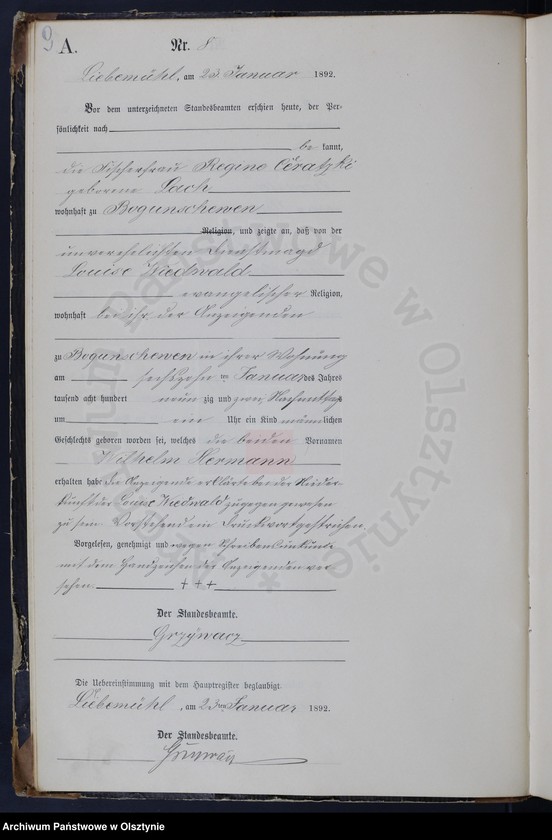 9
A.
Nr. 8
Liebemühl, am 23. Januar 1892.
Vor dem unterzeichneten Standesbeamten erschien heute, der Per-
sönlichkeit nach
be kannt,
die Fischerfrau Regine Czratzki
geborene Lach
wohnhaft zu Bogunschewen
Religion, und zeigte an, daß von der
unverehelichten Dienstmagd
Louise Kiedwald
evangelischer Religion,
wohnhaft bei ihr der Anzeigenden
zu Bogunschewen in ihrer Wohnung
am sechszehn ten Januar des Jahres
tausend acht hundert neun zig und zwei Nachmittags
um ein Uhr ein Kind männlichen
Geschlechts geboren worden sei, welches die beiden Vornamen
Wilhelm Hermann
erhalten habe Die Anzeigende erklärte bei der Nieder-
kunft der Louise Kiedwald zugegen gewesen
zu sein. Vorstehend ein Druckwort gestrichen.
Vorgelesen, genehmigt und wegen Schreibensunkunde
mit dem Handzeichen der Anzeigenden ver-
sehen +++
Der Standesbeamte.
Grzywacz
Die Uebereinstimmung mit dem Hauptregister beglaubigt.
Liebemühl, am 23ten Januar 1892.
Der Standesbeamte.
Grzywacz
Archiwum Państwowe w Olsztynie
Archiwum Państwowe w Olsztynie